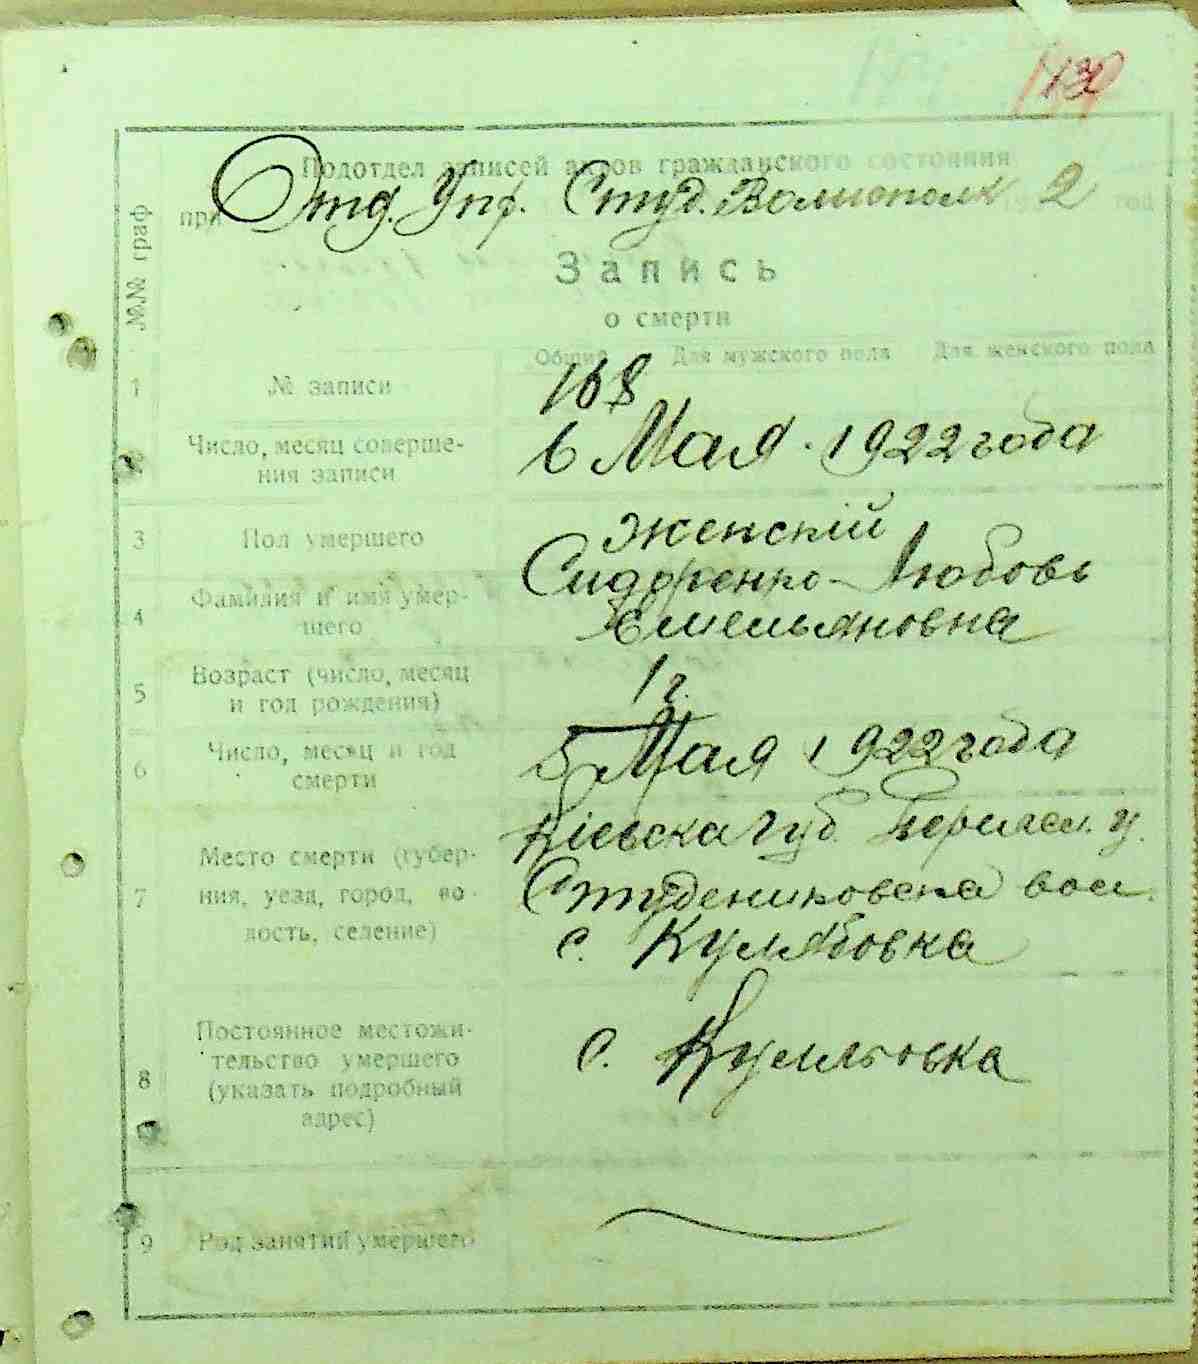 Подотдел записей актов гражданского состояния
при Отд. Упр. Студ. Волисполк 2 год
№№ граф
Запись
о смерти
Общий Для мужского пола Для женского пола
1 № записи 168
Число, месяц соверше-
ния записи
6 Мая 1922 года
3 Пол умершего женскій
4 Фамилия и имя умер-
шего
Сидоренко Любовь
Емельяновна
5 Возраст (число, месяц
и год рождения)
1 г.
6 Число, месяц и год
смерти
5 Мая 1922 года
7 Место смерти (губер-
ния, уезд, город, во-
лость, селение)
Кіевска губ. Переясл. у.
Студениковска вол.
с. Кулябовка
8 Постоянное местожи-
тельство умершего
(указать подробный
адрес)
с. Кулябовка
9 Род занятий умершего